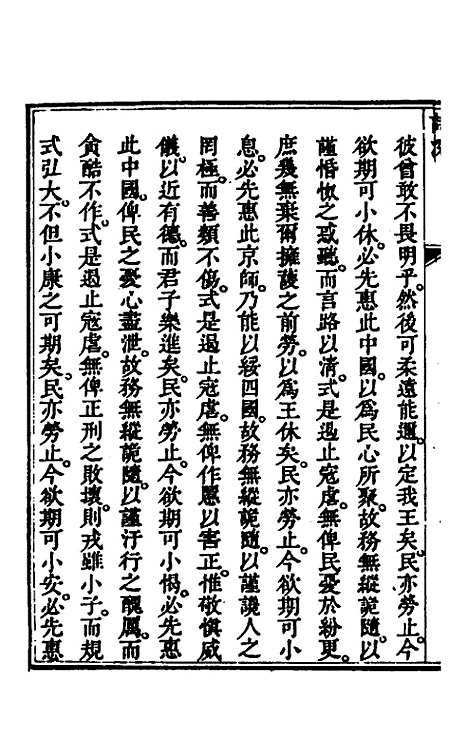 彼曾敢不畏明乎。然後可柔遠能邇。以定我王矣。民亦勞止。今
欲期可小休。必先惠此中國。以爲民心所聚。故務無縱詭隨。以
謹惛怓之惑聽。而言路以清。式是遏止寇虐。無俾民憂於紛更。
庶幾無棄爾擁護之前勞。以爲王休矣。民亦勞止。今欲期可小
息。必先惠此京師。乃能以綏四國。故務無縱詭隨。以謹譏人之
罔極。而善類不傷。式是遏止寇虐。無俾作慝以害正。惟敬愼威
儀。以近有德。而君子樂進矣。民亦勞止。今欲期可小愒。必先惠
此中國。俾民之憂心盡泄。故務無縱詭隨。以謹汙行之醜厲。而
貪酷不作。式是遏止寇虐。無俾正刑之敗壞。則戎雖小子。而規
式弘大。不但小康之可期矣。民亦勞止。今欲期可小安。必先惠